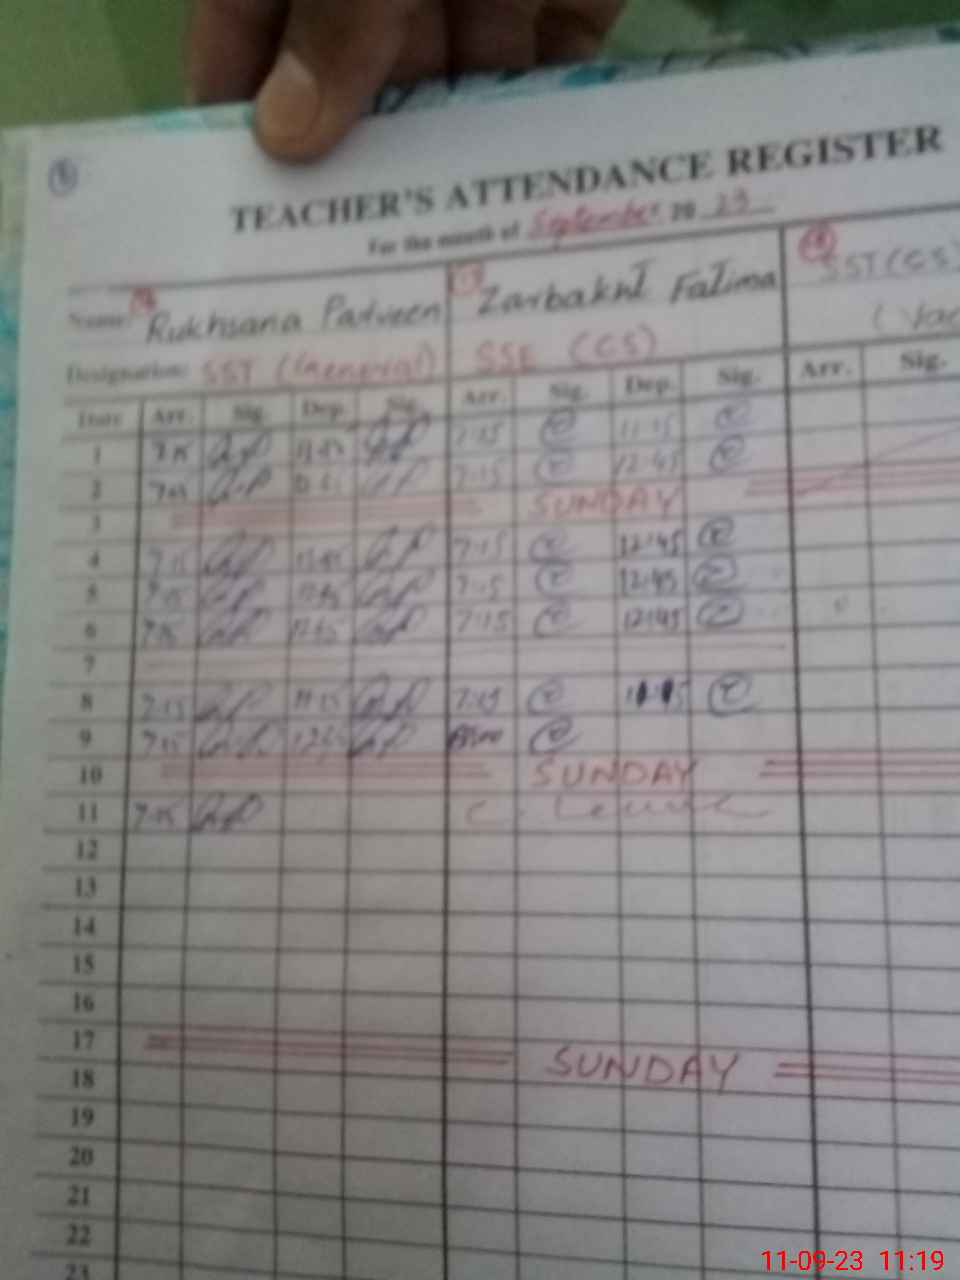 TEACHER'S ATTENDANCE REGISTER
For the month of September 20 23
Name: Rukhsana Parveen Zarbakht Fatima SST (CS)
Designation: SST (General) SSE (CS)
Date Arr. Sig. Dep. Sig. Arr. Sig. Dep. Sig. Arr. Sig.
1 7:15 7:15 11:15
2 7:15 12:45
3 SUNDAY
4 7:15 7:15 12:45
5 7:15 7:15 12:45
6 7:15 7:15 12:45
7
8 7:15 11:15 7:15 11:15
9 7:15
10 SUNDAY
11 7:15 C. Leave
12
13
14
15
16
17 SUNDAY
18
19
20
21
22
23
11-09-23 11:19